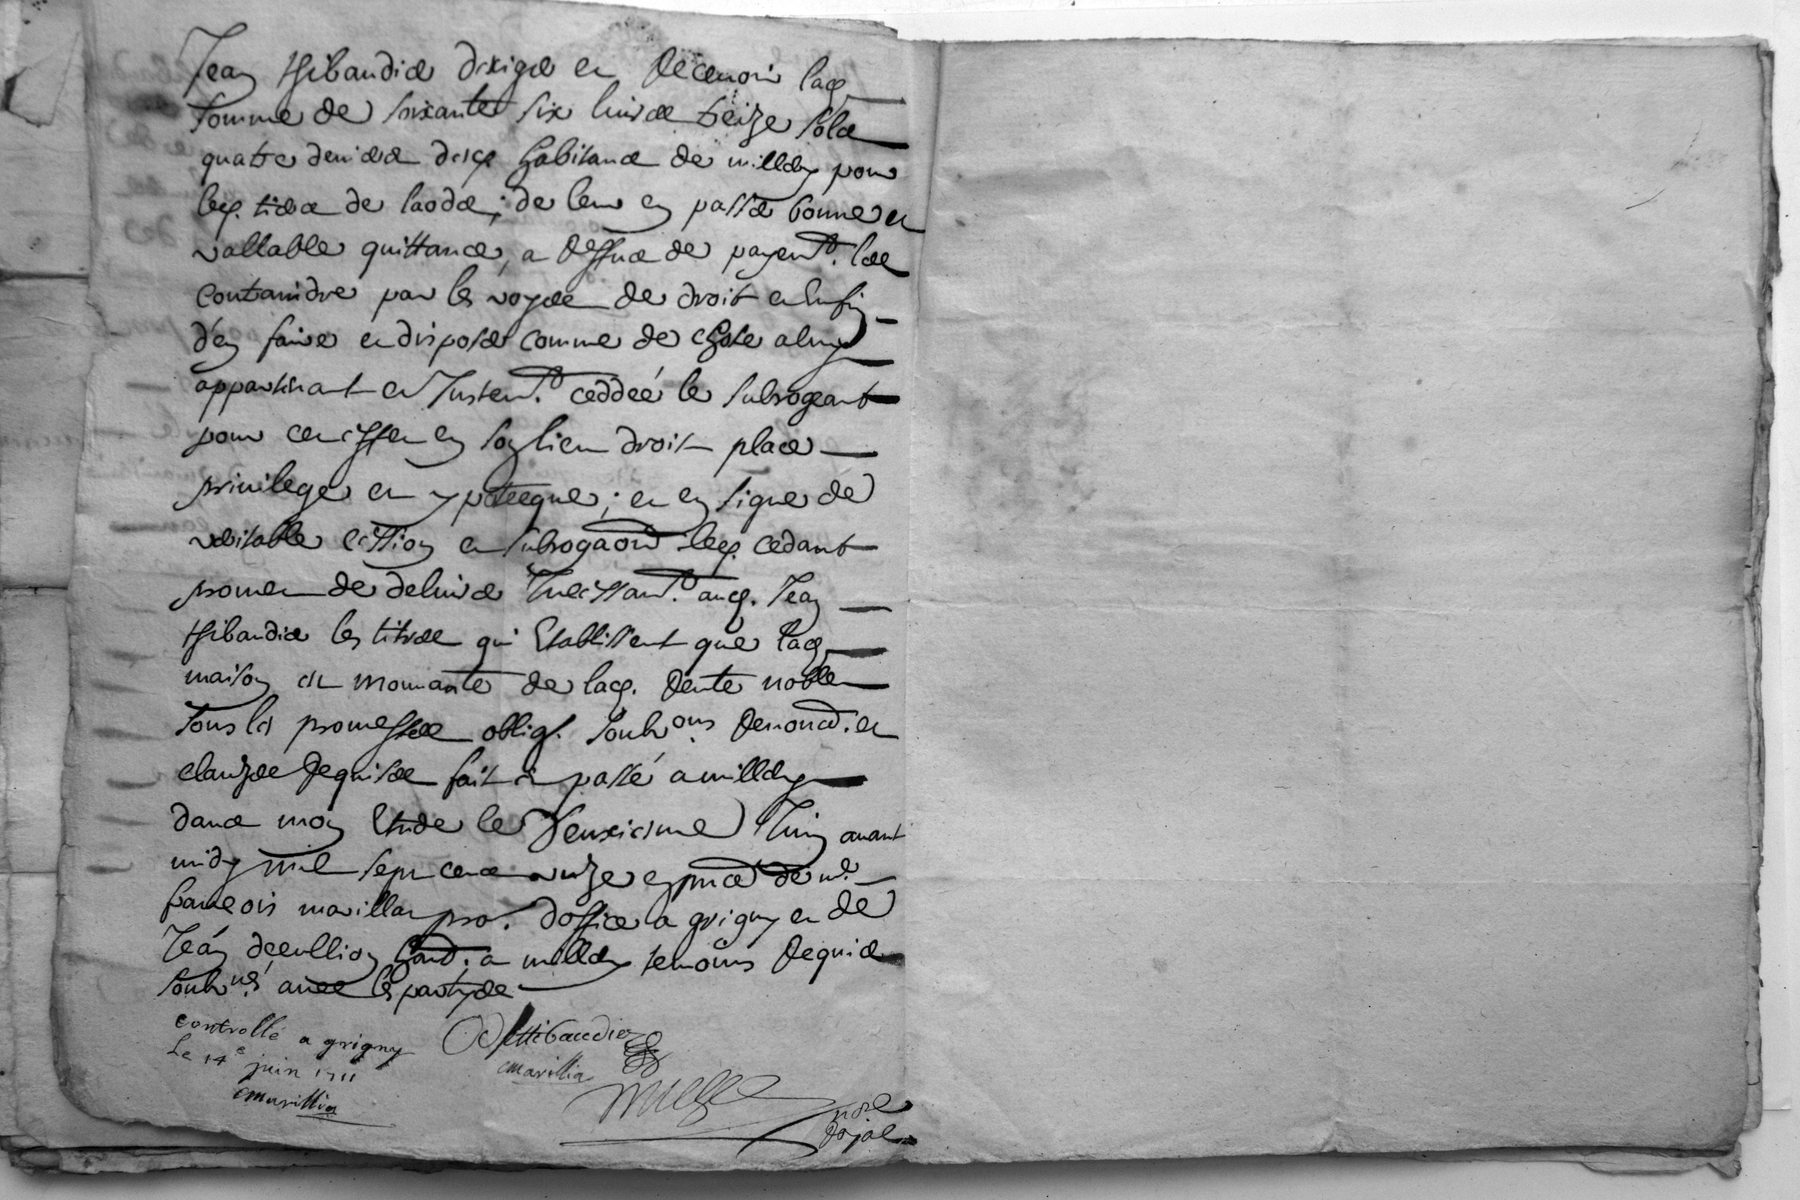 Jean thibaudier d'exiger et Recevoir lad.
somme de soixante six livres treize solz
quatre deniers desd. habitans de millery pour
led. de leur en passer bonne et
vallable quittance, a deffaut de payemt. les
contraindre par les voyes de droit et enfin
d'en faire et disposer comme de chose a luy
appartenant et Justemt. ceddée le subrogeant
pour cet effet en son lieu droit place
privilege et ypoteque; et en signe de
veritable cession et subrogaon led. cedant
promet de delivrer Incessamt. aud. Jean
thibaudier les titres qui Etablissent que lad.
maison est mouvante de lad. Rente noble
sous les promesses oblig. soubmons Renonca. et
clauzes Requises fait et passé a millery
dans mon Etude le deuxieme Juin avant
midy mil sept cens unze en pnce de mr.
francois marillat pror. d'office a grigny et de
Jean decullion a millery temoins Requis
soub.nés avec les partyes
controllé a grigny
Le 14e juin 1711
Marillia
Thibaudier
Marillia
nore
Royal